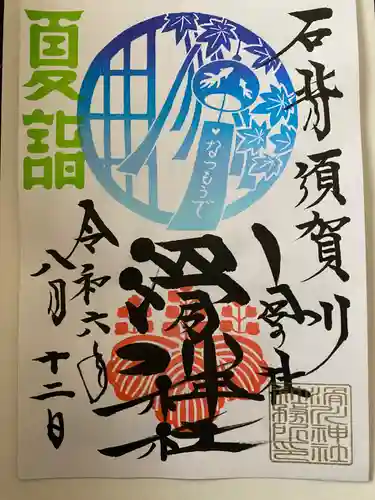 石背須賀川
夏詣
なつもうで
滑川神社
令和六年
八月十二日
滑川神社
社務所印